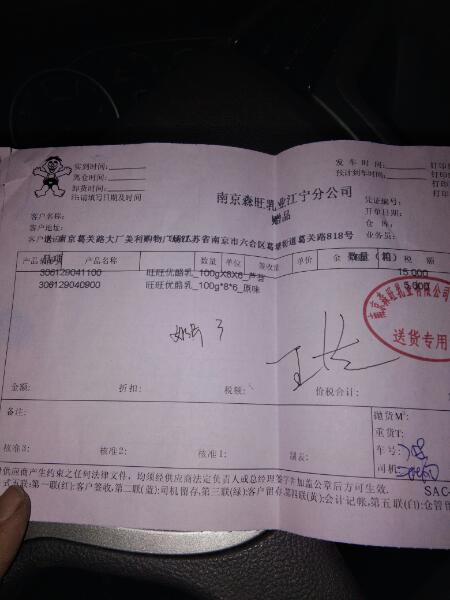 实到时间:
离仓时间:
卸货时间:
PS:请填写日期及时间
发 车 时 间:
预计到车时间:
打印
打印
打印
南京森旺乳业江宁分公司
赠品
凭证编号:
开单日期:
仓 库:
业务员:
客户名称:
客户地址:
南京葛关路大厂美利购物广场江苏省南京市六合区葛塘街道葛关路818号
品项 产品名称 数量 单位 签收量 单价 金 数量(箱) 税 额
306129041100 旺旺优酪乳_100gX8X6_芦荟 15.000
306129040900 旺旺优酪乳_100g*8*6_原味 5.000
南京森旺乳业有限公司
送货专用
金额: 折扣: 税额: 价税合计:
备注:
抛货M³:
重货T:
车号:
司机:
核准3: 核准2: 核准1: 制表:
供应商产生约束之任何法律文件，均须经供应商法定负责人或总经理签字并加盖公章后方可生效.
SAC-
式五联:第一联(红):客户签收,第二联(蓝):司机留存,第三联(绿):客户留存,第四联(黄):会计记帐,第五联(白):仓管留